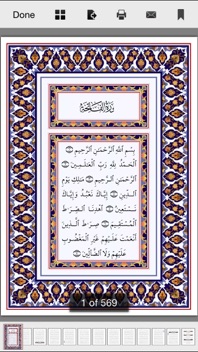 Done
سورة الفاتحة
بِسْمِ ٱللَّهِ ٱلرَّحْمَٰنِ ٱلرَّحِيمِ ۝١
ٱلْحَمْدُ لِلَّهِ رَبِّ ٱلْعَٰلَمِينَ ۝٢
ٱلرَّحْمَٰنِ ٱلرَّحِيمِ ۝٣ مَٰلِكِ يَوْمِ
ٱلدِّينِ ۝٤ إِيَّاكَ نَعْبُدُ وَإِيَّاكَ
نَسْتَعِينُ ۝٥ ٱهْدِنَا ٱلصِّرَٰطَ
ٱلْمُسْتَقِيمَ ۝٦ صِرَٰطَ ٱلَّذِينَ
أَنْعَمْتَ عَلَيْهِمْ غَيْرِ ٱلْمَغْضُوبِ
عَلَيْهِمْ وَلَا ٱلضَّآلِّينَ ۝٧
1 of 569